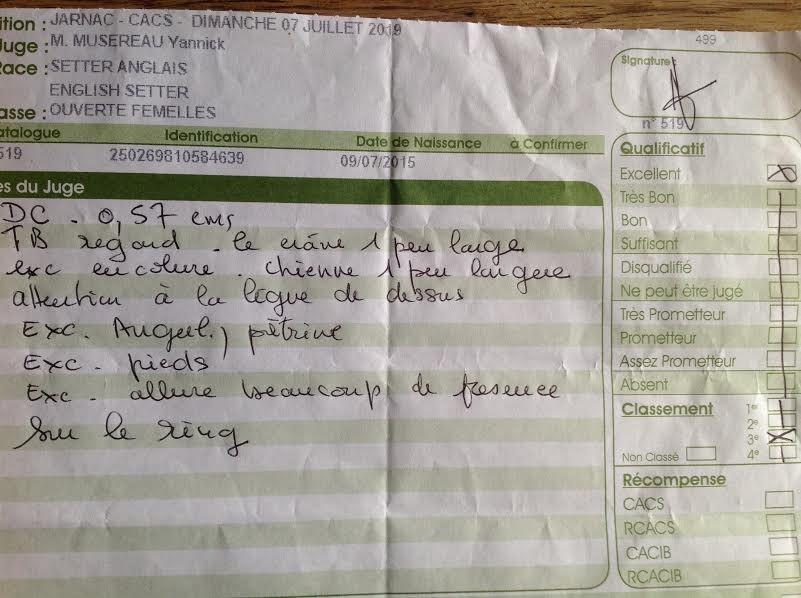 ition : JARNAC - CACS - DIMANCHE 07 JUILLET 2019
Juge : M. MUSEREAU Yannick
Race : SETTER ANGLAIS
ENGLISH SETTER
asse : OUVERTE FEMELLES
499
Signature
n° 519
atalogue Identification Date de Naissance à Confirmer
519 250269810584639 09/07/2015
es du Juge
DC - 0,57 cms
TB regard - le crâne 1 peu large
exc encolure . chienne 1 peu longue
attention à la ligne de dessus
Exc. Angul., pêtrine
Exc - pieds
Exc - allure beaucoup de presence
sur le ring
Qualificatif
Excellent
Très Bon
Bon
Suffisant
Disqualifié
Ne peut être jugé
Très Prometteur
Prometteur
Assez Prometteur
Absent
Classement 1er
2e
3e
Non Classé 4e
Récompense
CACS
RCACS
CACIB
RCACIB